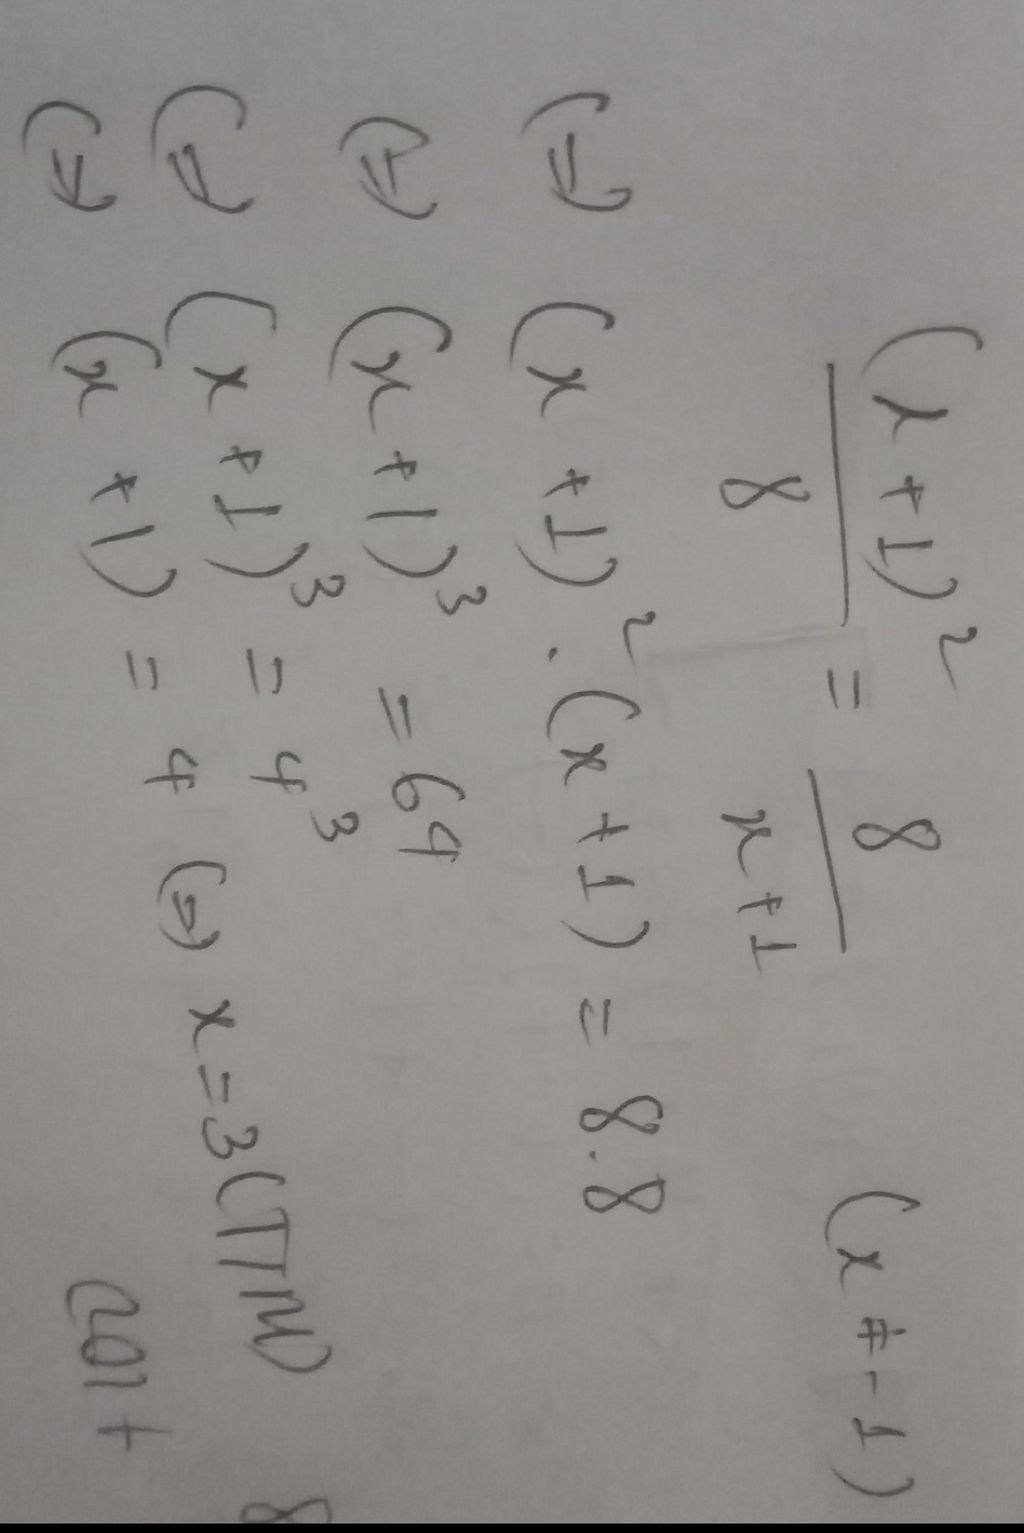 (x+1)²/8 = 8/(x+1) (x ≠ -1)
(=) (x+1)² . (x+1) = 8.8
(=) (x+1)³ = 64
(=) (x+1)³ = 4³
(=) (x+1) = 4 (=) x = 3 (TTM)
8